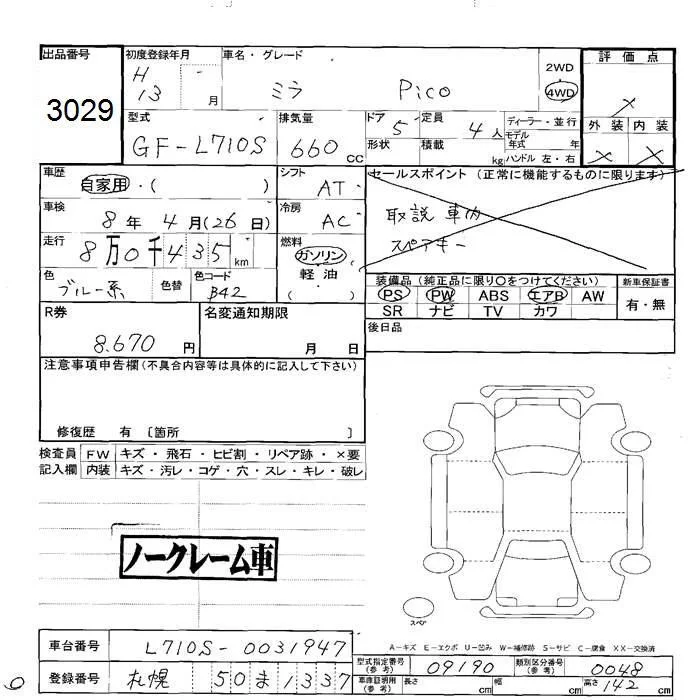 出品番号
3029
初度登録年月
H
13 月
車名・グレード
ミラ Pico
2WD
4WD
評価点
×
外装 内装
× ×
型式
GF-L710S
排気量
660 cc
ドア 5
形状
定員 4 人
積載 kg
ディーラー・並行
モデル
年式 年
ハンドル 左・右
車歴
自家用・( )
シフト
AT
セールスポイント (正常に機能するものに限ります)
取説 車内
スペアキー
車検
8 年 4 月(26 日)
冷房
AC
走行
8 万 0 千 4 3 5 km
燃料
ガソリン
軽油
( )
色
ブルー系
色替
色コード
B42
装備品 (純正品に限り○をつけてください)
PS PW ABS エアB AW
SR ナビ TV カワ
新車保証書
有・無
R券
8.670 円
名変通知期限
月 日
後日品
注意事項申告欄 (不具合内容等は具体的に記入して下さい)
修復歴 有 〔箇所 〕
検査員
記入欄
FW キズ・飛石・ヒビ割・リペア跡・×要
内装 キズ・汚レ・コゲ・穴・スレ・キレ・破レ
ノークレーム車
スペア
A-キズ E-エクボ U-凹み W-補修跡 S-サビ C-腐食 XX-交換済
車台番号 L710S-0031947
登録番号 札幌 50 ま 1337
型式指定番号
(参考)
09190
類別区分番号
(参考)
0048
車庫証明用
(参考)
長さ cm
幅 cm
高さ 142 cm